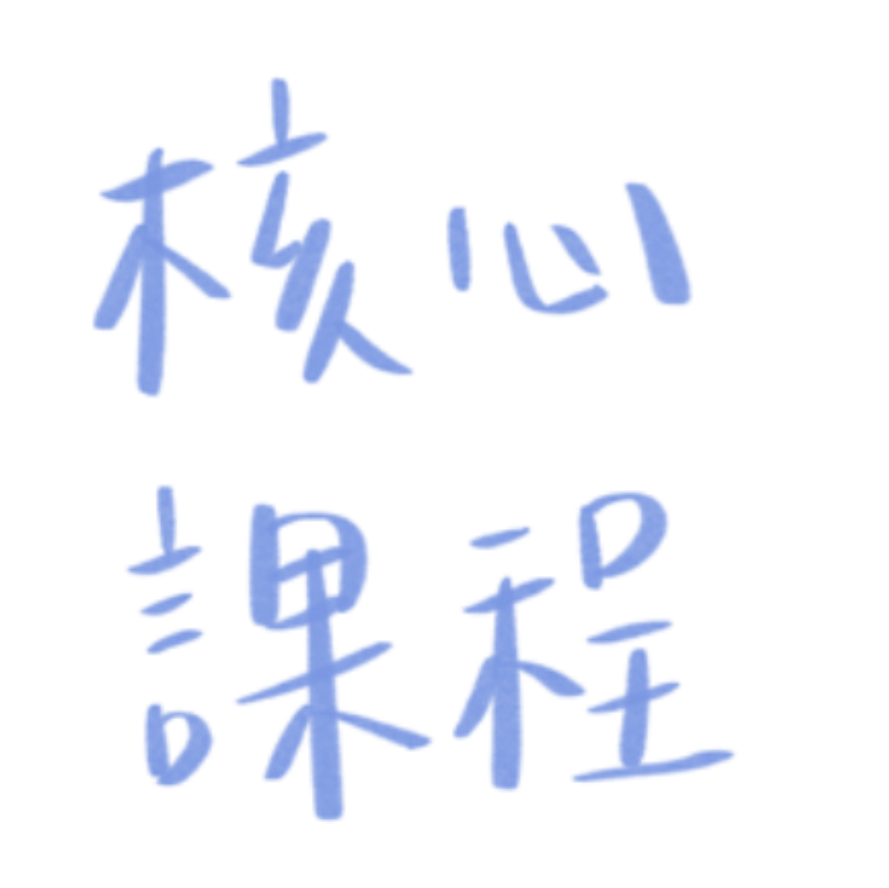 核心
課程